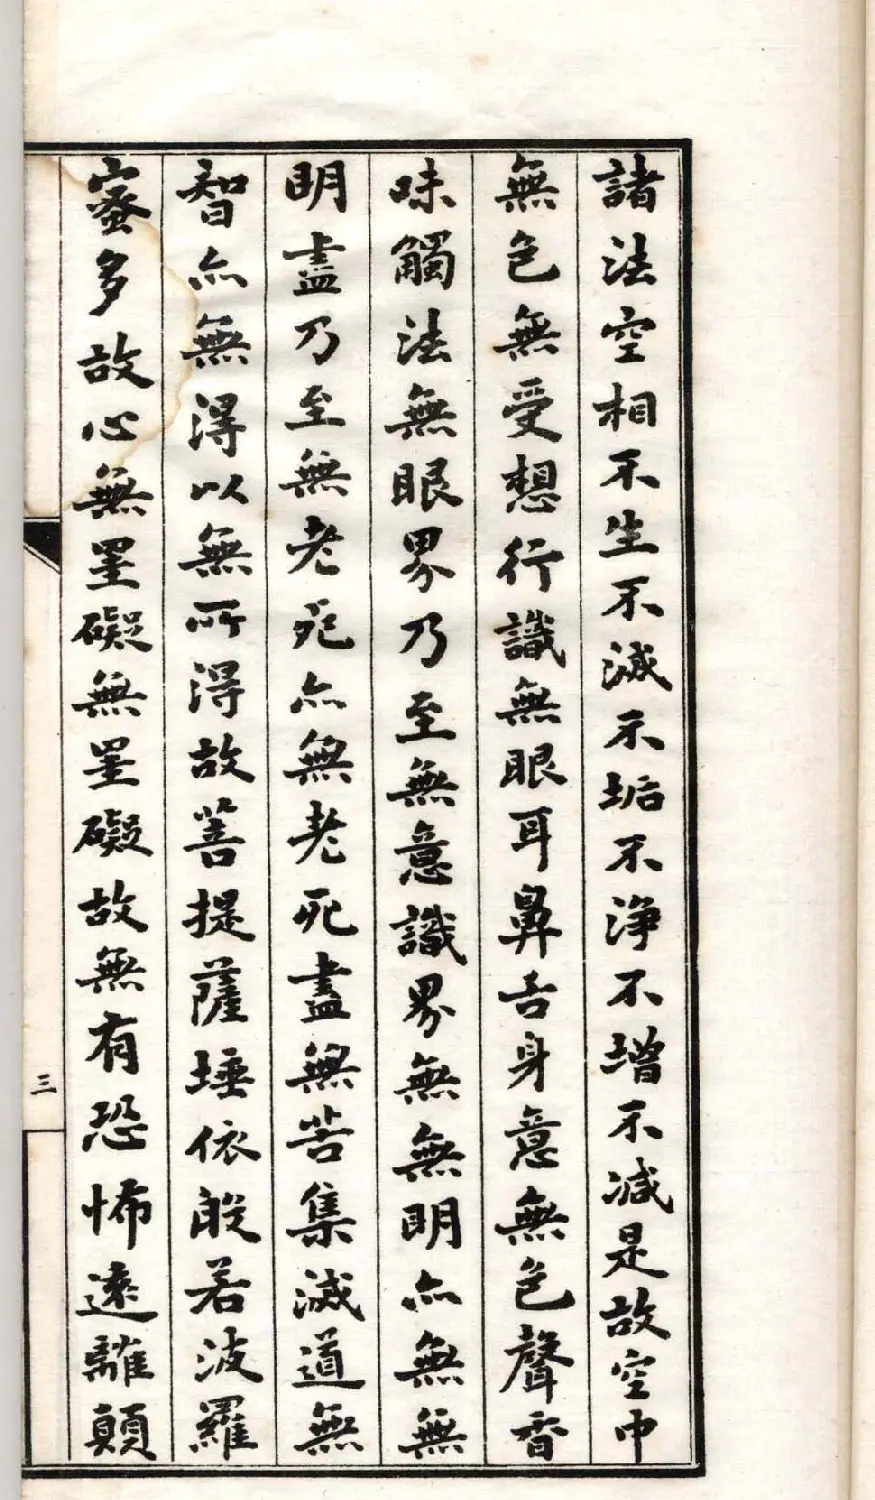 諸法空相不生不滅不垢不淨不增不減是故空中
無色無受想行識無眼耳鼻舌身意無色聲香
味觸法無眼界乃至無意識界無無明亦無無
明盡乃至無老死亦無老死盡無苦集滅道無
智亦無得以無所得故菩提薩埵依般若波羅
蜜多故心無罣礙無罣礙故無有恐怖遠離顛
三